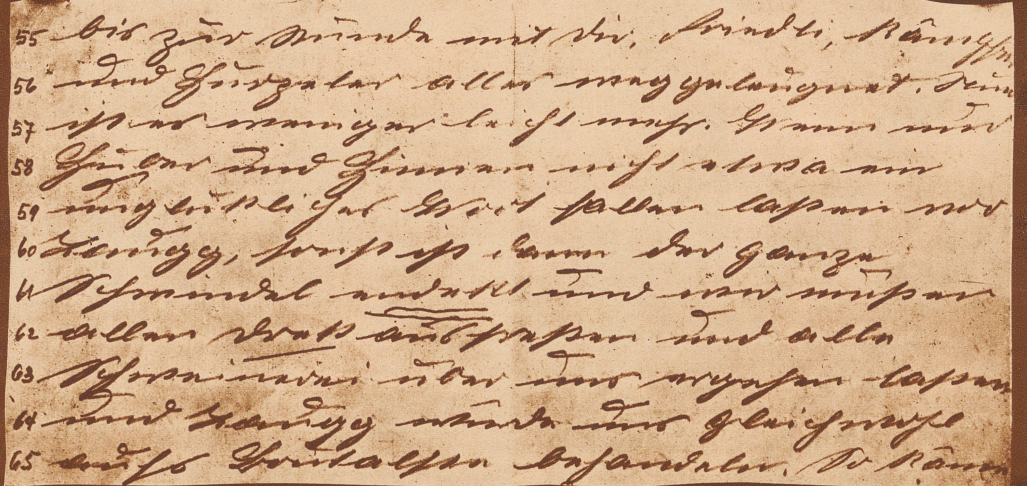 55 bis zur Stunde mit dir, Friedli, Kämpfer
56 und Hurzeler alles weggeleugnet. Nun
57 ist es weniger leicht mehr. Wenn nur
58 Huber und Zinnen nicht etwa ein
59 unglükliches Wort fallen laßen vor
60 Zaugg, sonst ist dann der ganze
61 Schwindel endekt und wir müßen
62 allen Drek ausfreßen und alle
63 Schweinerei über uns ergehen laßen
64 und Zaugg würde uns gleichwohl
65 aufs Brutalste behandeln. So käme